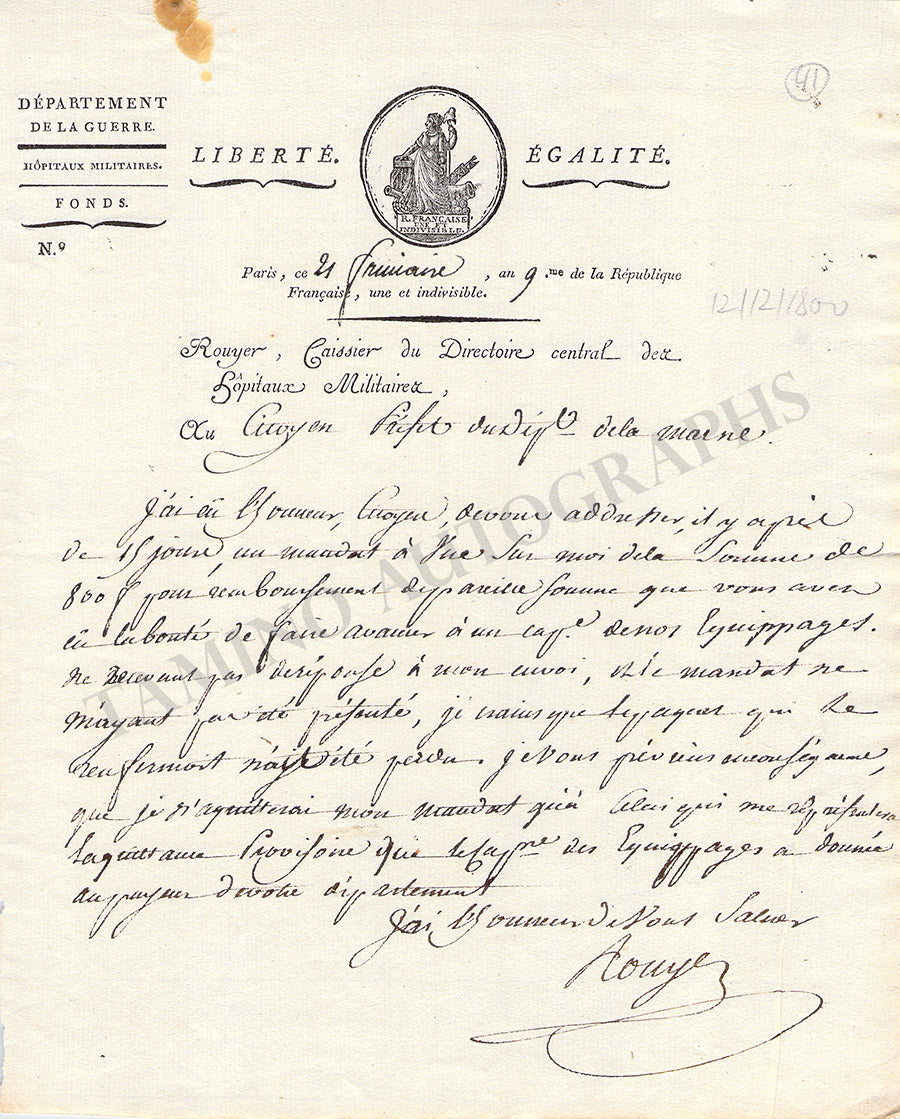 41
DÉPARTEMENT
DE LA GUERRE.
HÔPITAUX MILITAIRES.
FONDS.
N.º
LIBERTÉ. ÉGALITÉ.
R. FRANÇAISE
UNE ET
INDIVISIBLE.
Paris, ce 21 frimaire, an 9.me de la République
Française, une et indivisible.
12/12/1800
Rouyer, Caissier du Directoire central des
Hôpitaux Militaires,
Au Citoyen Préfet du Dép.t de la marne.
J'ai eû l'honneur, Citoyen, de vous addresser, il y a près
de 15 jours, un mandat à Vue Sur moi de la Somme de
800 f pour remboursement de pareille somme que vous avez
eû la bonté de faire avancer à un cap.e de nos Equippages.
ne Recevant pas de réponse à mon envoi, et le mandat ne
m'ayant pas été présenté, je crains que le paquet qui le
renfermoit n'ait été perdu. je Vous préviens en conséquence,
que je n'aquitterai mon mandat qu'à Celui qui me représentera
la quittance Provisoire que le Cap.ne des Equippages a donnée
au payeur de votre département
J'ai l'honneur de Vous Saluer
Rouyer
TAMINO AUTOGRAPHS